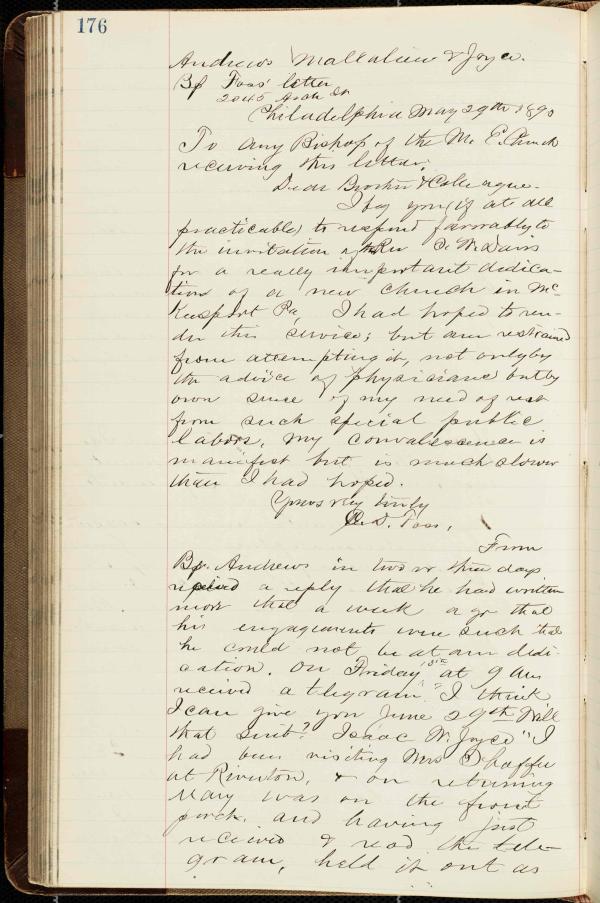 176
Andrews Mallalieu & Joyce.
Bp Foss' letter
2045 Arch St
Philadelphia May 29th 1890
To any Bishop of the M. E. Church
receiving this letter;
Dear Brother & Colleague.
I beg you (if at all
practicable) to respond favorably to
the invitation of the Rev C. W. Davis
for a really important dedica-
tion of a new church in Mc-
Keesport Pa, I had hoped to ren-
der this service; but am restrained
from attempting it, not only by
the advice of physicians but by
own sense of my need of rest
from such special public
labors. My convalescence is
manifest but is much slower
than I had hoped.
Yours very truly
C. D. Foss.
From
Bp. Andrews in two or three days
recived a reply that he had written
more that a week ago that
his engagements were such that
he could not be at our dedi-
cation. On Friday at 9 am
received a telegram "I think
I can give you June 29th Will
that suit? Isaac W. Joyce" I
had been visiting Mrs
at Riverton, & on returning
Mary was on the front
porch, and having just
received & read the tele-
gram, held it out as